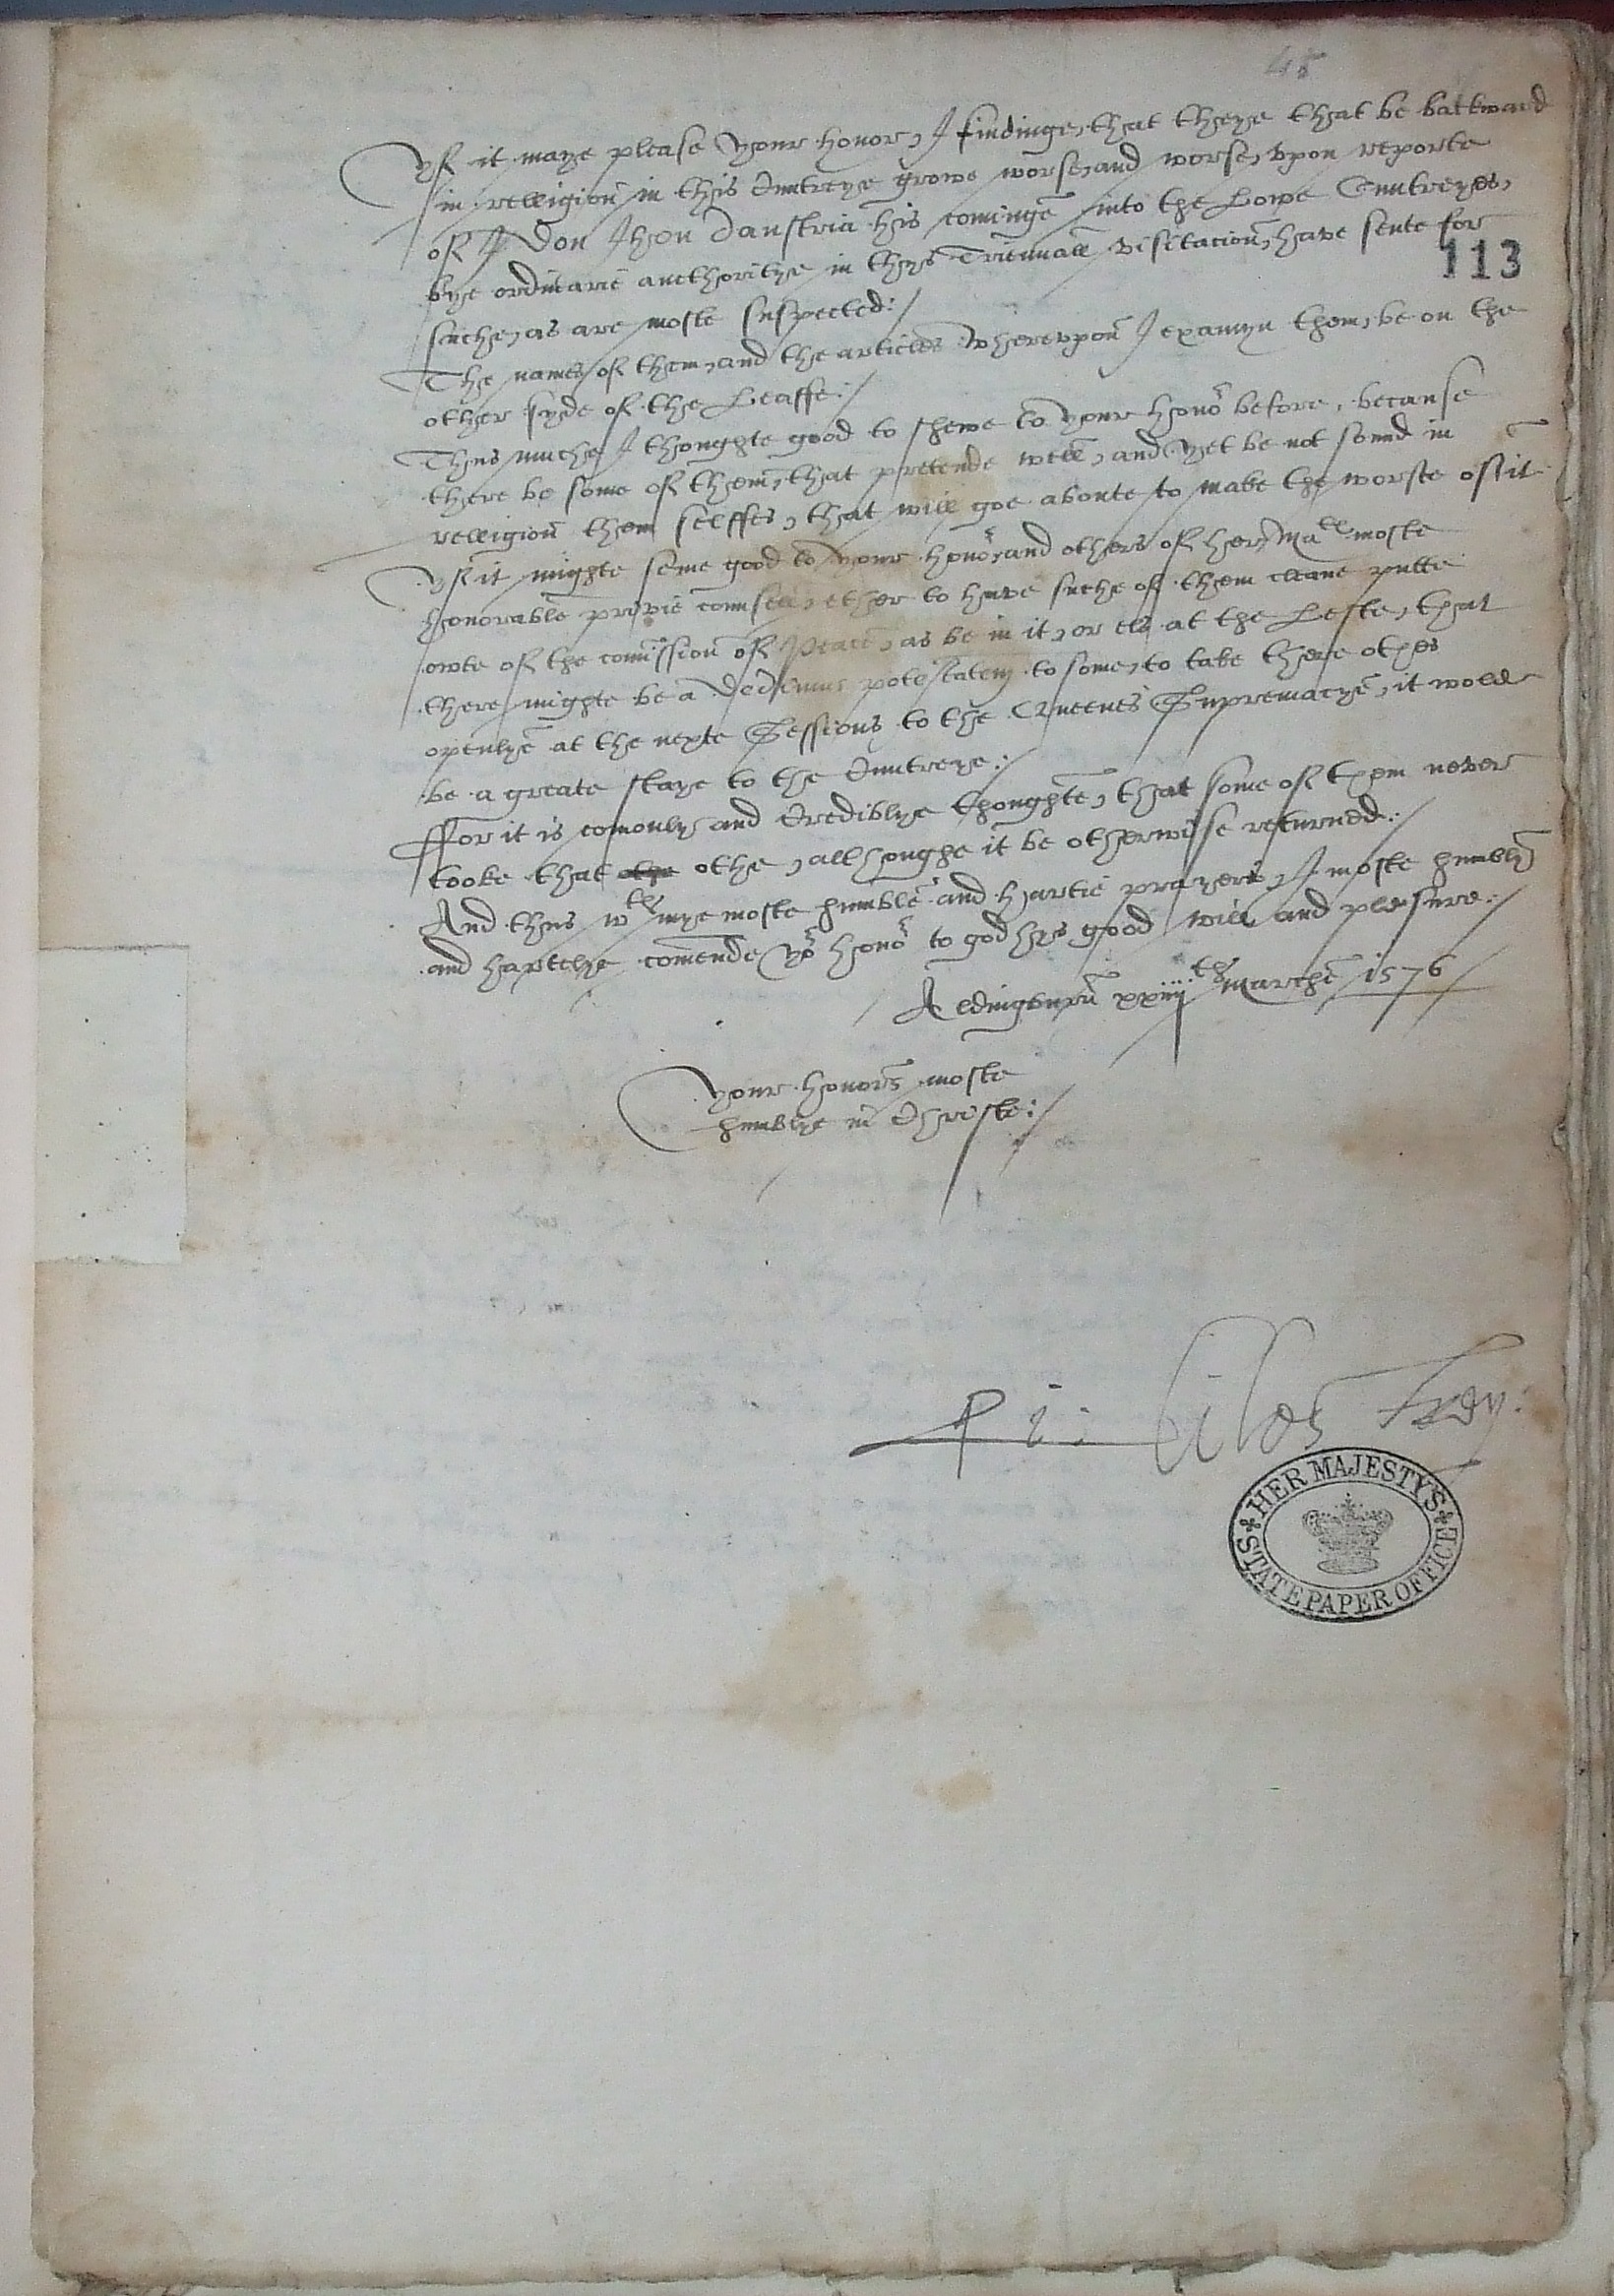 48
yf it maye please your honor, I findinge, that theye that be backward
in relligion in this Cuntreye growe worse, and worse, vpon reporte
of Don Jhon daustria his cominge into the Lowe Cuntreyes,
bye ordinarie aucthoritye in thys Triennall visitacion, have sente for
113
suche, as are moste suspected:/
The names of them, and the articles wherevpon I examyn them, be on the
other syde of the Leaffe:/
Thus muche I thoughte good to shewe to your honor before, because
there be some of them, that pretende well, and yet be not sound in
relligion them selffes, that will goe aboute to make the worste of it
yf it mighte seme good to your honor, and others of her Matie moste
honorable privie counsell, ether to have suche of them cleane putte
owte of the comission of Peace, as be in it, or els at the Leste, that
there mighte be a Dedimus potestatem to some, to take there othes
openlye at the nexte Sessions to the Queenes Supremacye, it wold
be a greate staye to the Cuntreye:/
ffor it is comonly and Crediblye thoughte, that some of them never
tooke that othe, allthoughe it be otherwise returned:/
And thus wth mye moste humble and hartie prayers, I moste humbly
and hartelye comende yor honor to god hys good will and plesure:/
Aldingbourn xxiiijth Marche 1576
your honors moste
humblye in Christe:/
Ri: Cicestren:
HER MAJESTYS STATE PAPER OFFICE